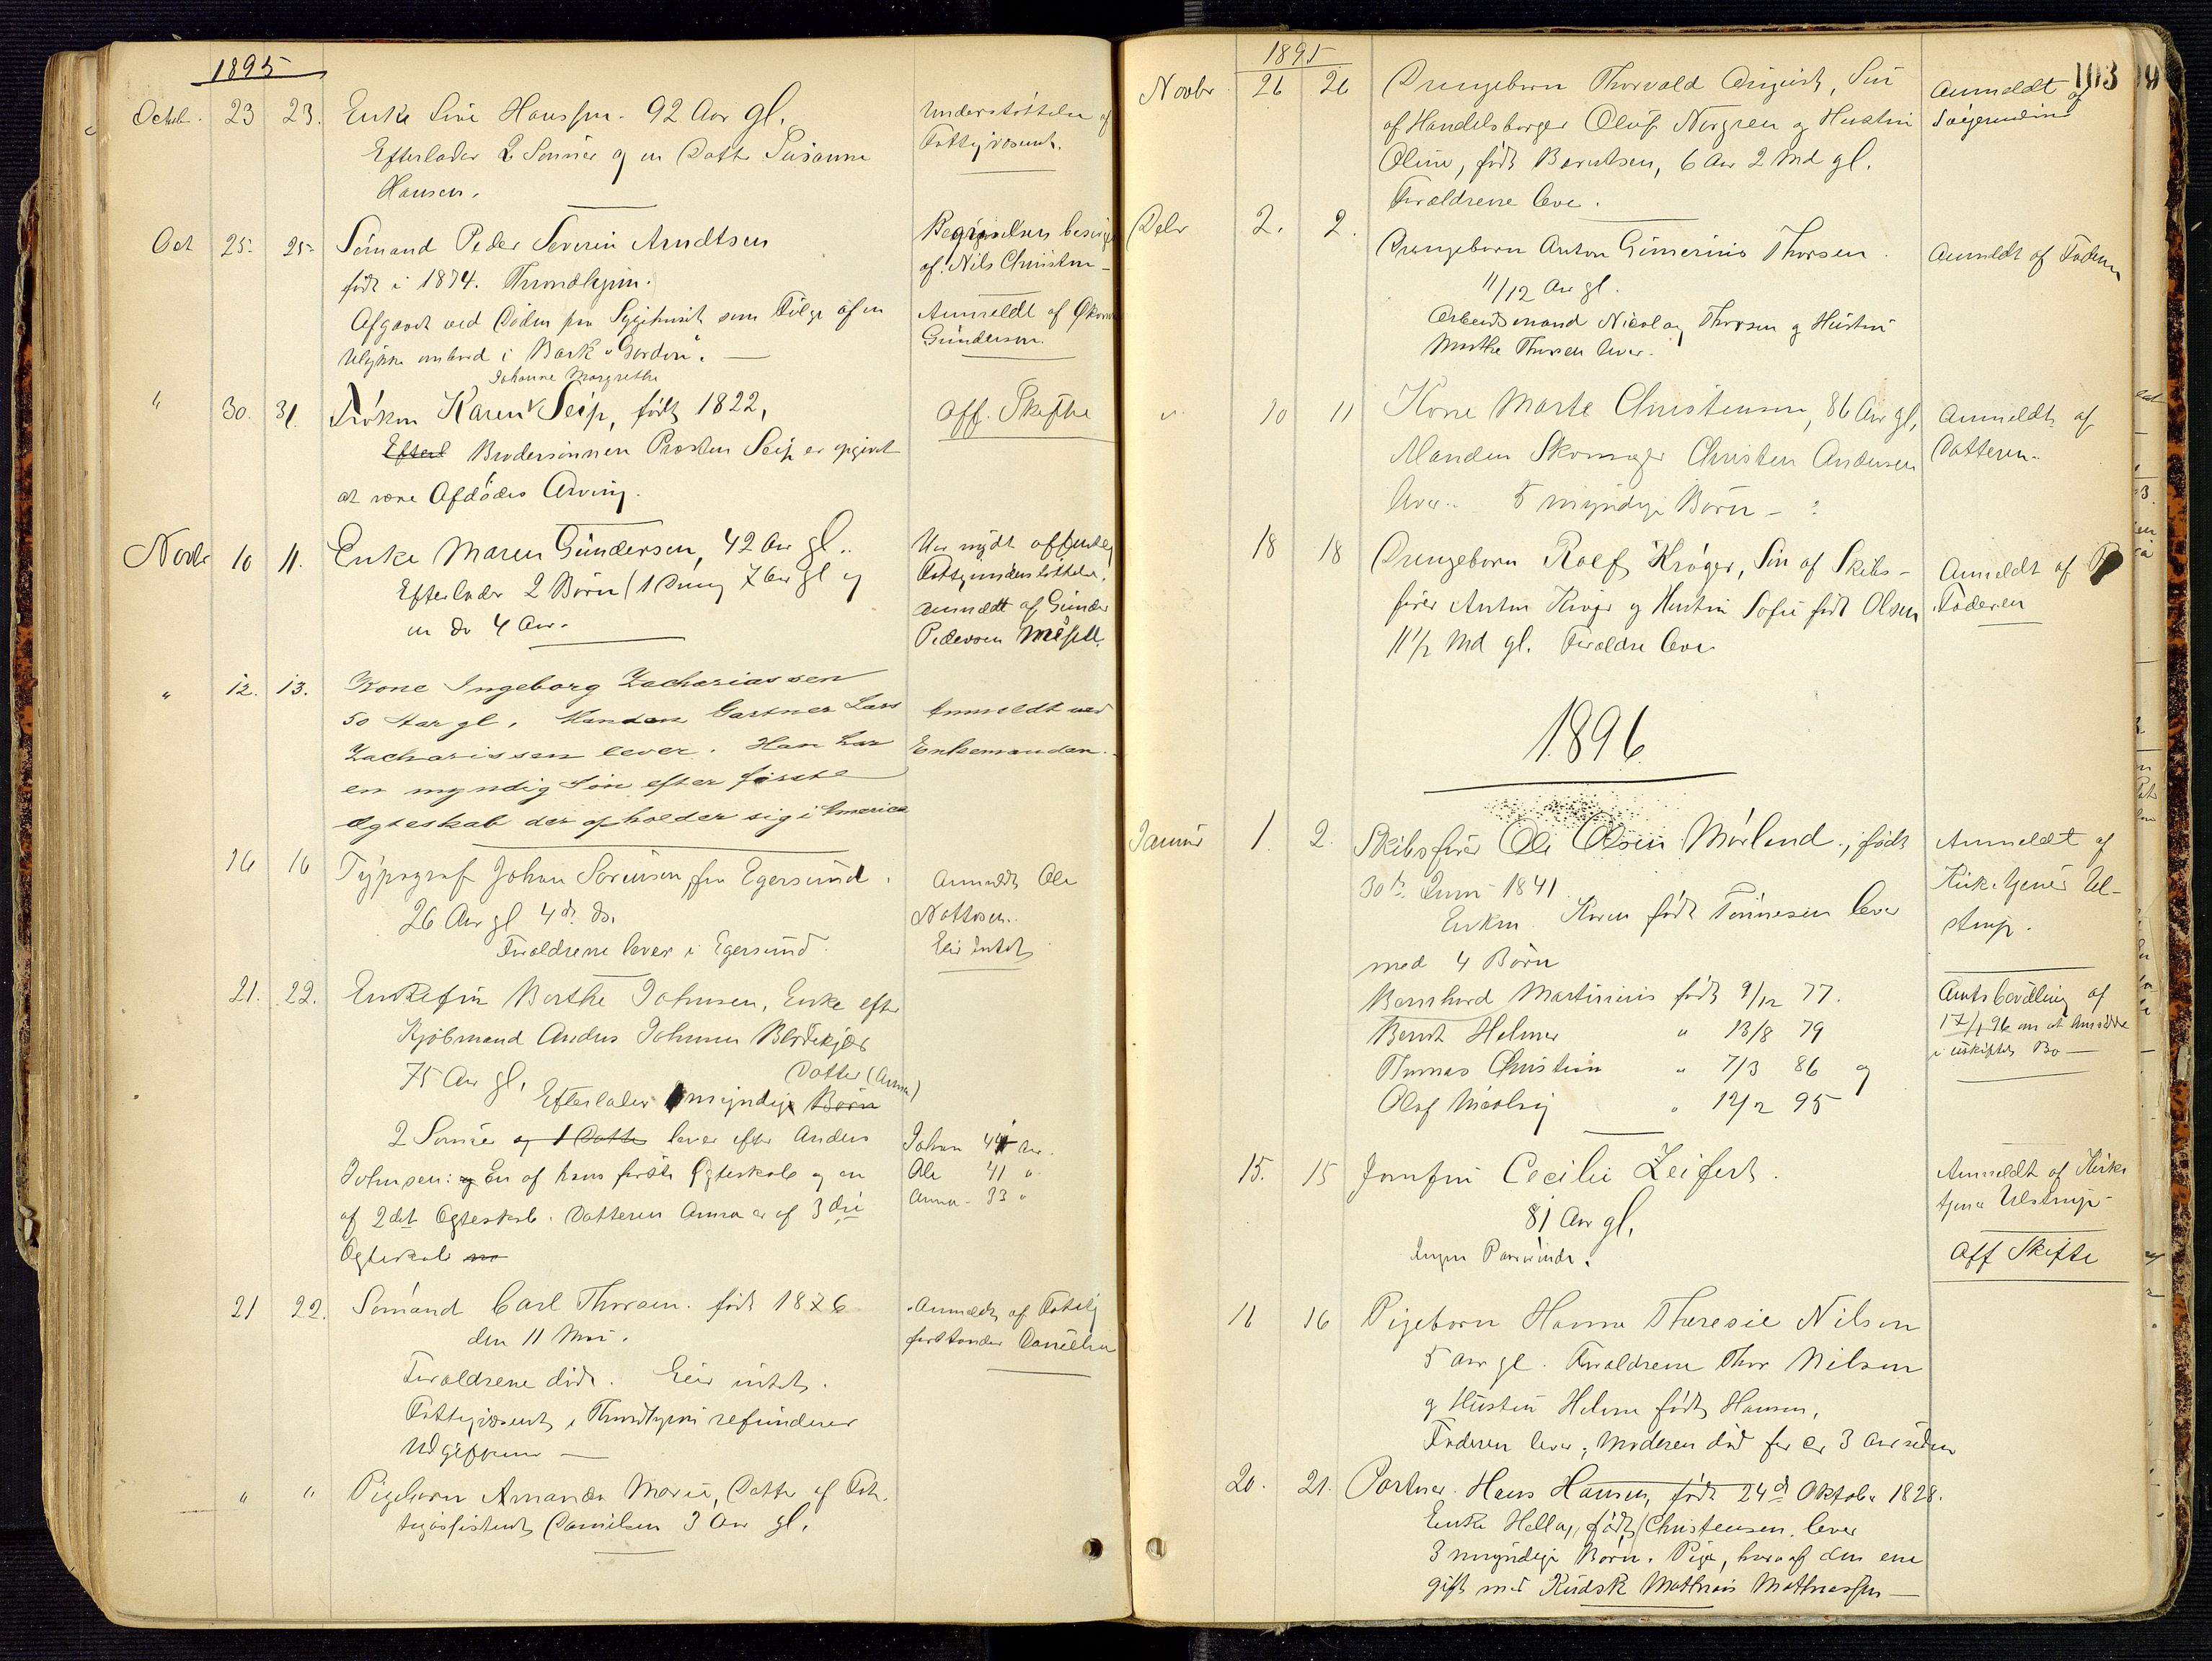 1895
Octob. 23 23. Enke Sine Hanssen. 92 Aar gl. Understøttelse af
Efterlader 2 Sønner og en Datter Susanne Fattigvæsenet.
Hansen.
Oct 25 25 Sømand Peder Severin Arndtsen Begravelsen besørget
født i 1874. Throndhjem. af Nils Christen
Afgaaet ved Døden paa Sygehuset som Følge af en Anmeldt af
Ulykke ombord i Bark "Gordon". Gundersen.
Johanne Margrethe
" 30. 31. Frøken Karen Seip, født 1822, Off. Skifte
Efterl Brodersønnen Provsten Seip er opgivet
at være Afdødes Arving.
Novbr 10 11. Enke Maren Gundersen, 42 Aar gl. Har nydt offentlig
Efterlader 2 Børn (1 Dreng 7 Aar gl og Fattigunderstøttelse.
en do 4 Aar. Anmeldt af Gunder
Pedersen
" 12. 13. Kone Ingeborg Zachariassen
50 Aar gl. Manden Gartner Lars Anmeldt ved
Zacharissen lever. Han har Enkemanden.
en myndig Søn efter første
Ægteskab der opholder sig i America
16 16 Typograf Johan Sørensen fra Egersund. Anmeldt Ole
26 Aar gl 4de ds. Nottosen.
Forældrene lever i Egersund. Eier Intet
21. 22. Enkefru Berthe Johnsen, Enke efter
Kjøbmand Anders Johnsen Blødekjær
75 Aar gl. Datter (Anna)
Efterlader myndige Børn
2 Sønner og 1 Datter lever efter Anders Johan 44 Aar.
Johnsen: og En af hans første Ægteskab og en Ole 41 "
af 2det Ægteskab. Datteren Anna er af 3die Anna 33 "
Ægteskab
21 22. Sømand Carl Thorsen. født 1876 Anmeldt af Fattig
den 11 Mai. forstander Danielsen
Forældrene døde. Eier intet.
Fattigvæsenet i Throndhjem refunderer
Udgifterne
" " Pigebarn Amanda Marie, Datter af Fat-
tigassistent Danielsen 3 Aar gl.
1895
103
Novbr 26 26 Drengebarn Thorvald August, Søn Anmeldt af
af Handelsborger Oluf Norgren og Hustru Svigerinden
Oline, født Berntsen, 6 Aar 2 Md gl.
Forældrene leve.
Debr 2. 2. Drengebarn Anton Gunerius Thorsen. Anmeldt af Faderen
11/12 Aar gl.
Arbeidsmand Nicolay Thorsen og Hustru
Marthe Thorsen lever.
" 10 11 Kone Marte Christensen, 86 Aar gl, Anmeldt af
Manden Skomager Christen Andersen Datteren.
lever. 5 myndige Børn - ?
18 18 Drengebarn Rolf Krøger, Søn af Skibs- Anmeldt af
fører Anton Krøger og Hustru Sofie født Olsen Faderen
11 1/2 Md gl. Forældre leve
1896
Januar 1. 2. Skibsfører Ole Olsen Mørland, født Anmeldt af
30te Juni 1841. Kirketjener Ul-
Enken Karen født Tønnesen lever strup.
med 4 Børn
Bernhard Martinius født 9/12 77. Amtsbevilling af
Bernt Helmer " 13/8 79 17/1 96 om at hensidde
Thomas Christian " 7/3 86 og i uskiftet Bo
Olaf Nicolay " 12/2 95
15. 15 Jomfru Cecilie Zeifert. Anmeldt af Kirke
81 Aar gl. tjener Ulstrup
Ingen Paarørende. Off Skifte
11 16 Pigebarn Hanna Theresie Nilsen
5 Aar gl. Forældrene Thor Nilsen
og Hustru Helene født Hansen,
Faderen lever, Moderen død for ca 3 Aar siden
20. 21. Portner Hans Hansen, født 24de Oktober 1828.
Enke Hella, født Christensen lever
3 myndige Børn. Piger, hvoraf den ene
gift med Kudsk Mathias Mathiassen